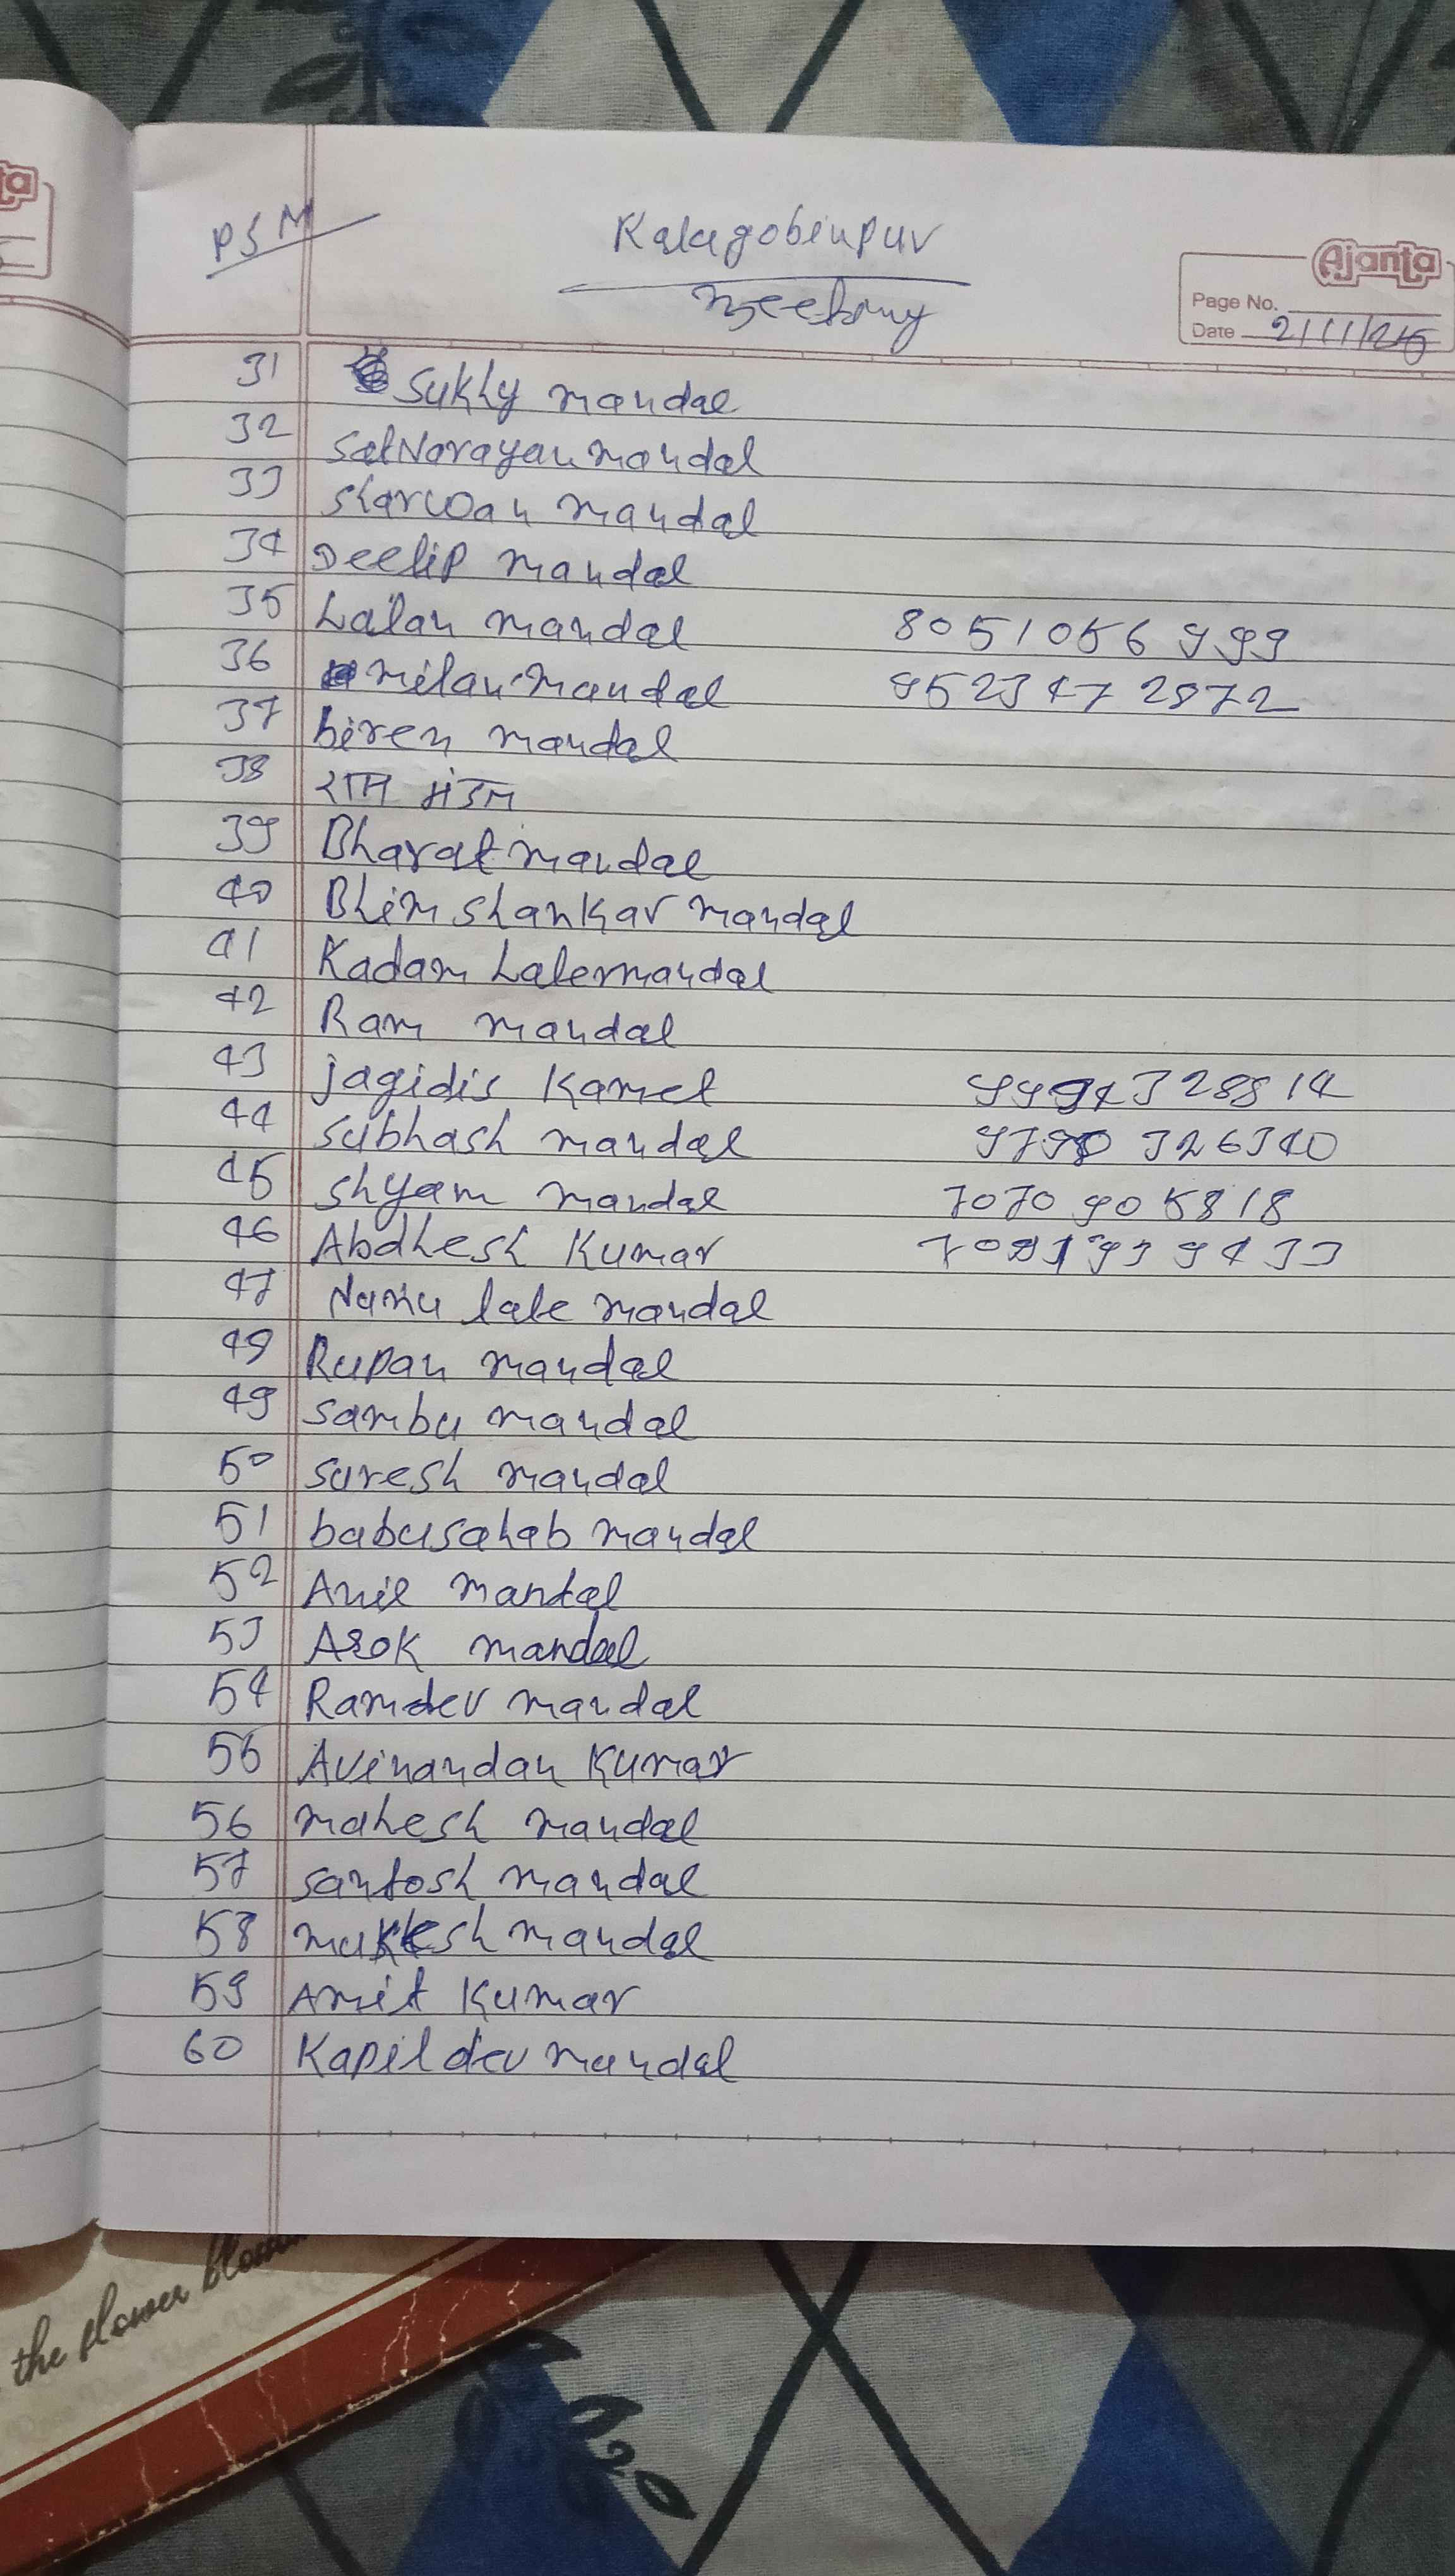 ta
PSM
Kalagobinpur
Meeting
Ajanta
Page No.
Date 21/1/26
31 Sukhy mandal
32 SatNarayan mandal
33 Sharwan mandal
34 Deelip mandal
35 Lalan mandal 8051056999
36 milan mandal 9523472872
37 biren mandal
38 राम मंडल
39 Bharat mandal
40 Bhim shankar mandal
41 Kadam Lale mandal
42 Ram mandal
43 jagidis Kamet
44 Subhash mandal
45 Shyam mandal 7070905818
46 Abdhesh Kumar
47 lale mandal
48 Rupan mandal
49 Sambu mandal
50 Suresh mandal
51 babusahab mandal
52 Anil mandal
53 Asok mandal
54 Ramdev mandal
55 Avinandan Kumar
56 mahesh mandal
57 santosh mandal
58 mukesh mandal
59 Amit Kumar
60 Kapil dev mandal
the flower